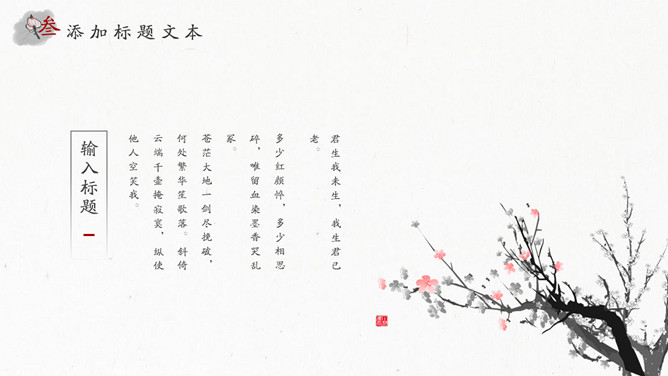 叁 添加标题文本
君生我未生，我生君已
老。
多少红颜悴，多少相思
碎，唯留血染墨香哭乱
冢。
苍茫大地一剑尽挽破，
何处繁华笙歌落。斜倚
云端千壶掩寂寞，纵使
他人空笑我。
输入标题